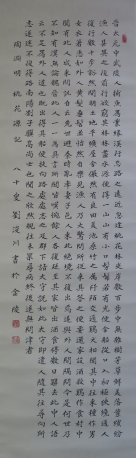 晉太元中武陵人捕魚為業緣溪行忘路之遠近忽逢桃花林夾岸數百步中無雜樹芳草鮮美落英繽紛
漁人甚異之復前行欲窮其林林盡水源便得一山山有小口髣髴若有光便舍船從口入初極狹纔通人
復行數十步豁然開朗土地平曠屋舍儼然有良田美池桑竹之屬阡陌交通雞犬相聞其中往來種作男
女衣著悉如外人黃髮垂髫並怡然自樂見漁人乃大驚問所從來具答之便要還家設酒殺雞作食村中
聞有此人咸來問訊自云先世避秦時亂率妻子邑人來此絕境不復出焉遂與外人間隔問今是何世乃
不知有漢無論魏晉此人一一為具言所聞皆歎惋餘人各復延至其家皆出酒食停數日辭去此中人語
云不足為外人道也既出得其船便扶向路處處誌之及郡下詣太守說如此太守即遣人隨其往尋向所
誌遂迷不復得路南陽劉子驥高尚士也聞之欣然規往未果尋病終後遂無問津者
陶淵明 桃花源記 八十叟 劉 川書於金陵